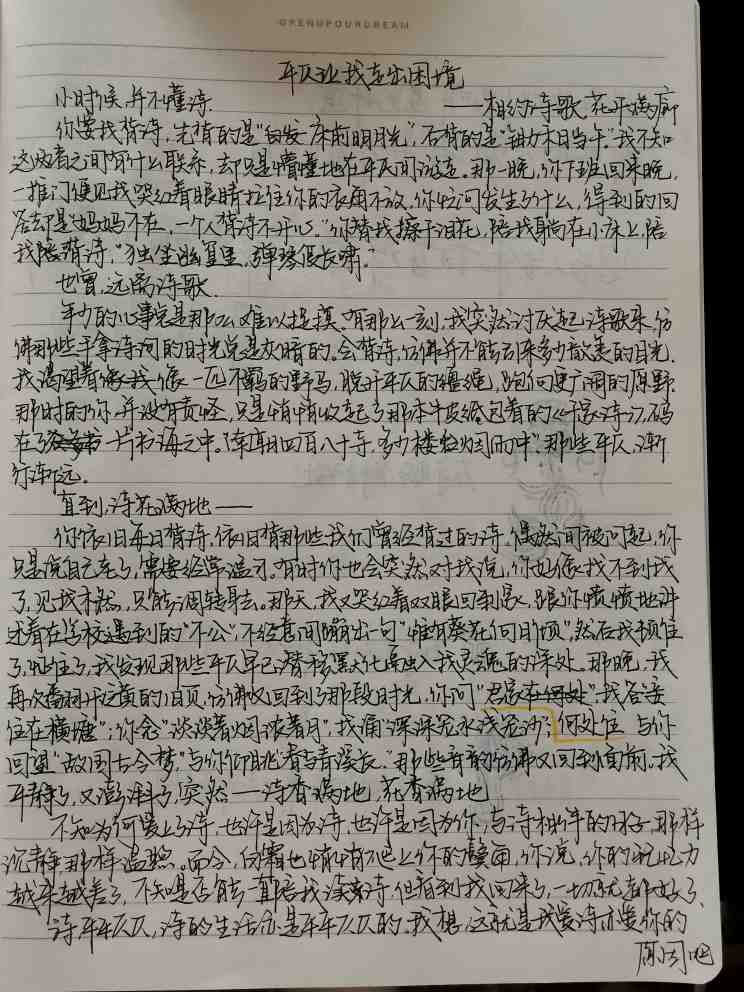 OPENYOURDREAM
平仄让我走出困境
——相约诗歌 花开满廊
小时候,并不懂诗.
你要我背诗,先背的是“床前明月光”,后背的是“锄禾日当午”。我不知
这两者之间有什么联系,却只是懵懂地在平仄间游走。那一晚,你下班回来晚,
一推门便见我哭红着眼睛拉住你的衣角不放,你忙问发生了什么,得到的回
答却是“妈妈不在,一个人背诗不开心。”你替我擦干泪花,陪我躺在小床上,陪
我陪背诗,“独坐幽篁里,弹琴复长啸。”
也曾,远离诗歌.
年少的心事总是那么难以捉摸.有那么一刻,我突然讨厌起诗歌来,仿
佛那些手拿诗词的时光总是灰暗的。会背诗,仿佛并不能引来多少歆羡的目光.
我渴望着像一匹不羁的野马,脱开平仄的缠绳,跑向更广阔的原野.
那时的你,并没有责怪,只是悄悄收起了那本牛皮纸包着的《千家诗》,码
在了一片书海之中。“南朝四百八十寺,多少楼台烟雨中”.那些平仄,渐
行渐远.
直到,诗花满地——
你依旧每日背诗,依旧背那些我们曾经背过的诗.偶然间被问起,你
只是说自己老了,需要经常温习.有时你也会突然对我说,你好像找不到我
了,见我木然,只能调转身去。那天,我又哭红着双眼回到家,跟你愤愤地讲
述着在学校遇到的“不公”,不经意间蹦出一句“惟有葵花向日倾”,然后我顿住
了,怔住了,我发现那些平仄早已潜移默化融入我灵魂的深处.那晚,我
再次翻开泛黄的旧页,仿佛又回到了那段时光,你问“君家何处住”,我答“妾
住在横塘”;你念“淡淡著烟浓著月”,我诵“深深笼水浅笼沙”;与你
回望“故国古今梦”,与你仰眺“看青溪长”.那些音韵仿佛又回到面前.我
平静了,又澎湃了,突然——诗香满地,花香满地
不知为何爱上了诗,也许是因为诗,也许是因为你,与诗相伴的日子,那样
沉静,那样温煦.而今,白霜也悄悄爬上你的鬓角,你说,你的记忆力
越来越差了,不知是否能一直陪我读诗,但看到我回来了,一切就都好了.
诗平平仄仄,诗的生活亦是平平仄仄的.我想,这就是我爱诗亦爱你的
原因吧